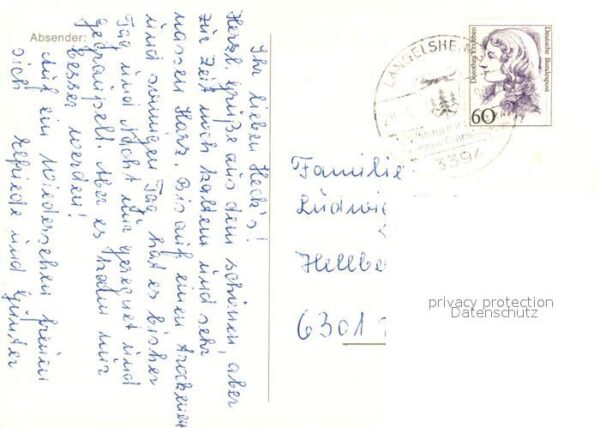 Absender:
Ihr lieben Heck's!
Herzl. Grüße aus dem schönen, aber
zur Zeit noch kalten und sehr
nassen Harz. Bis auf einen trockenen
und sonnigen Tag hat es bisher
Tag und Nacht nur geregnet und
gegraupelt. Aber es kann nur
besser werden!
Auf ein Wiedersehen freuen
sich und Günter
LANGELSHEIM
3394
Dorothea Erxleben
Deutsche Bundespost
60
Familie
Ludwig
Hellbe
6301
privacy protection
Datenschutz